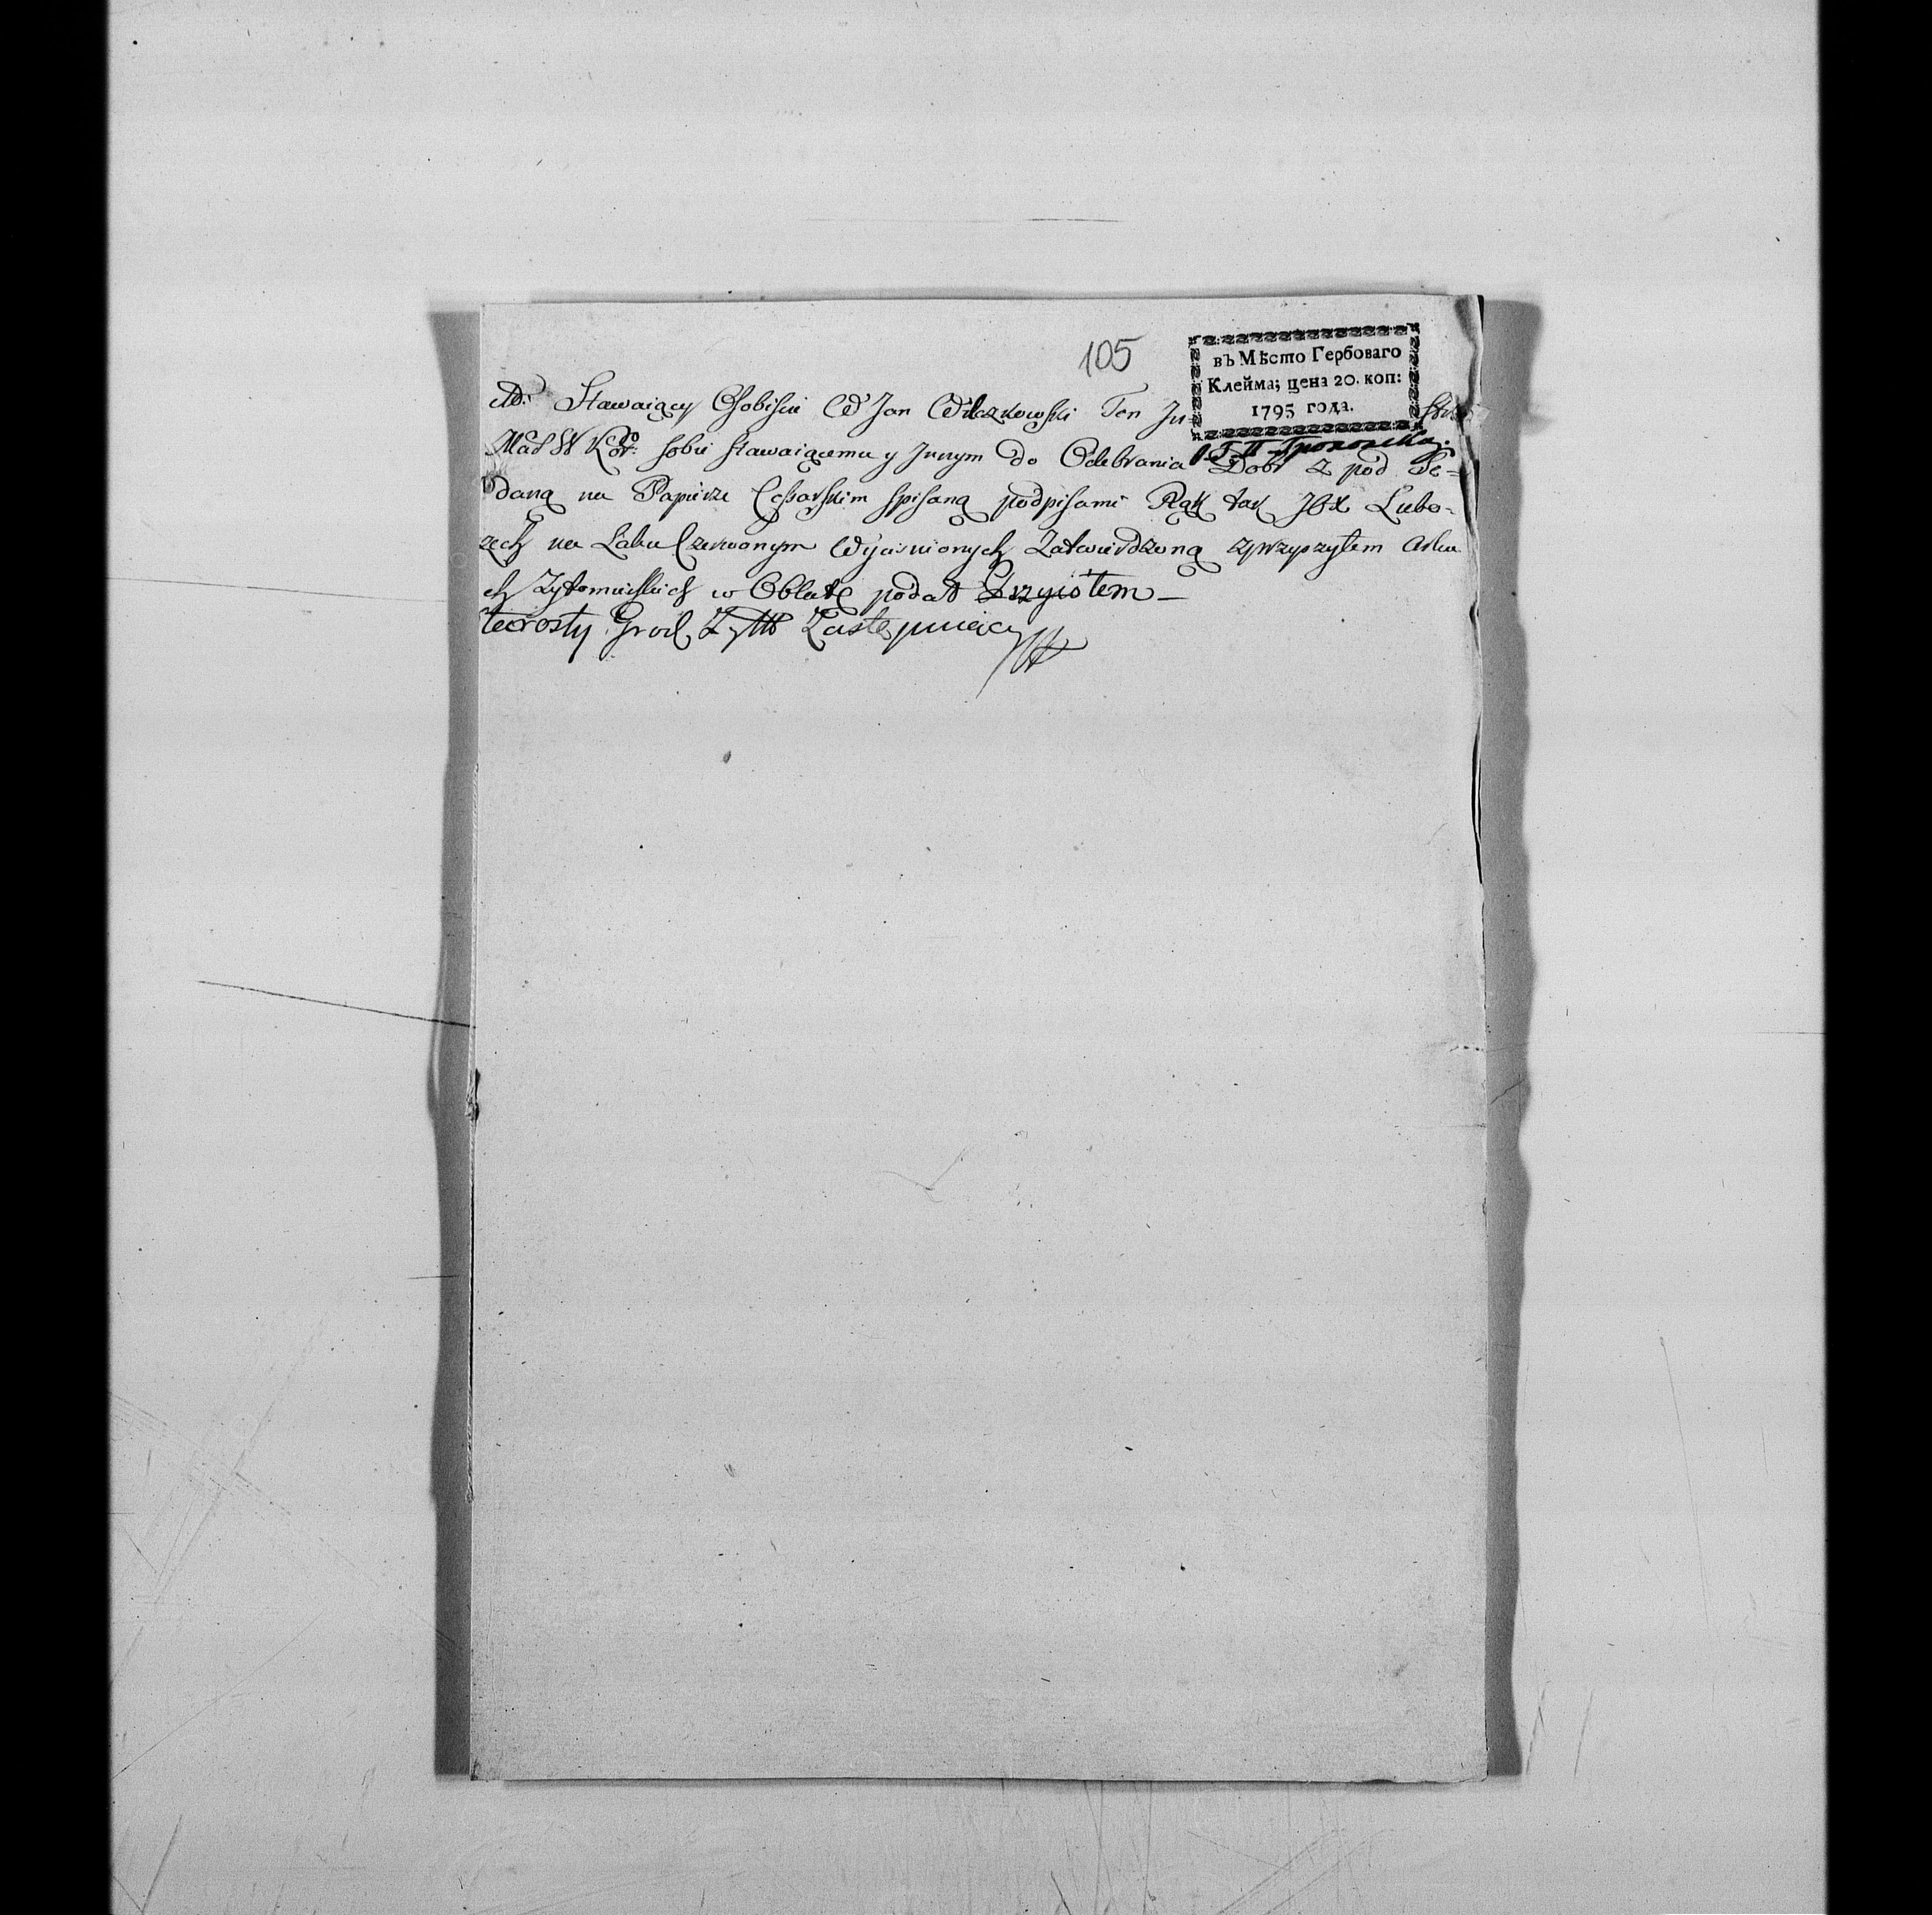 105
въ Мѣсто Гербоваго
Клейма; цена 20. коп:
1795 года.
Stawaiący Osobiście W Jan Wilczkowski Ten
sobie stawaiącemu y Innym do Odebrania Dobr z pod Se=
daną na Papierze Cesarskim spisaną podpisami Rąk tak Lubo-
zech na Laku Czerwonym Wyciśnionych Zatwierdzoną
ch Zytomirskich w Oblatę podał Przyiołem—
tarosty Grod Zastępuiący